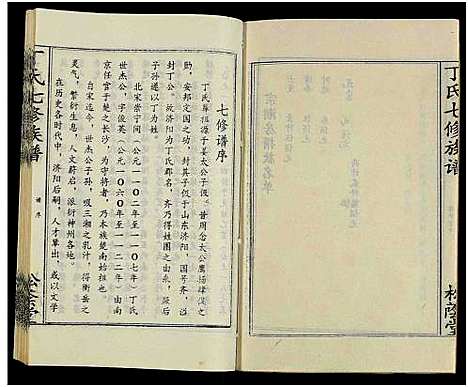 丁氏七修族谱
松荫堂
七修谱序
丁氏尊祖源于姜太公子伋。昔周念太公鹰扬肆伐之
助，安邦定国之功，封其子伋于山东济阳，国号齐，溢
封丁公。故济阳为丁氏郡名，齐乃得姓国之由来，此后
子孙遂以丁为姓。
北宋崇宁间（公元一一〇二年至一一〇七年）丁氏
世杰公，字俊英（公元一〇六〇年至一一二二年）由南
京任官于楚之长沙，为守持者，乃本族楚南始祖也。
自宋迄今，世杰公子孙，吸三湘之乳汁，得衡岳之
灵气，繁衍生息，人文蔚启，派衍神州各地。
在历史各时代中，济阳后嗣，人才辈出，或以文学
丁氏七修族谱
谱序
松荫堂